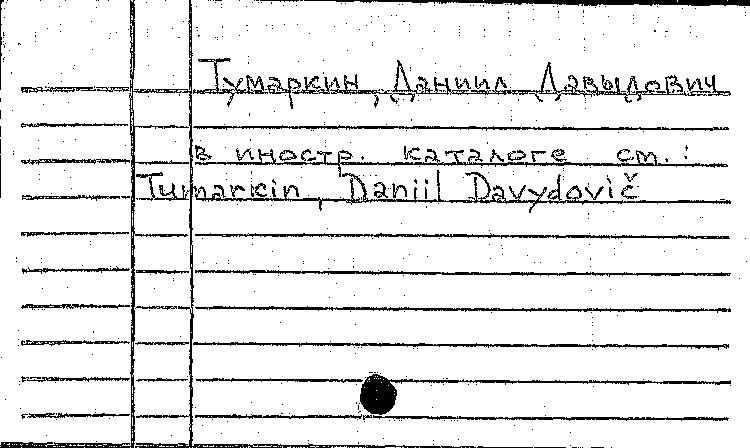 Тумаркин, Даниил Давыдович
в иностр. каталоге см.:
Tumarkin, Daniil Davydovič